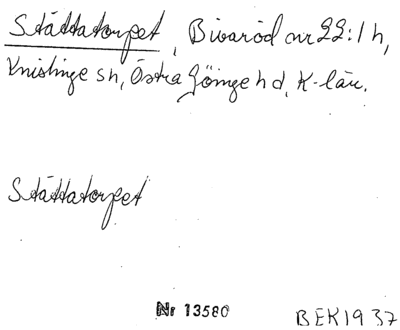 Stättatorpet, Bivaröd nr 22:1 h,
Knislinge sn, Östra Göinge hd, K-län.
Stättatorpet
Nr 13580 BEK1937